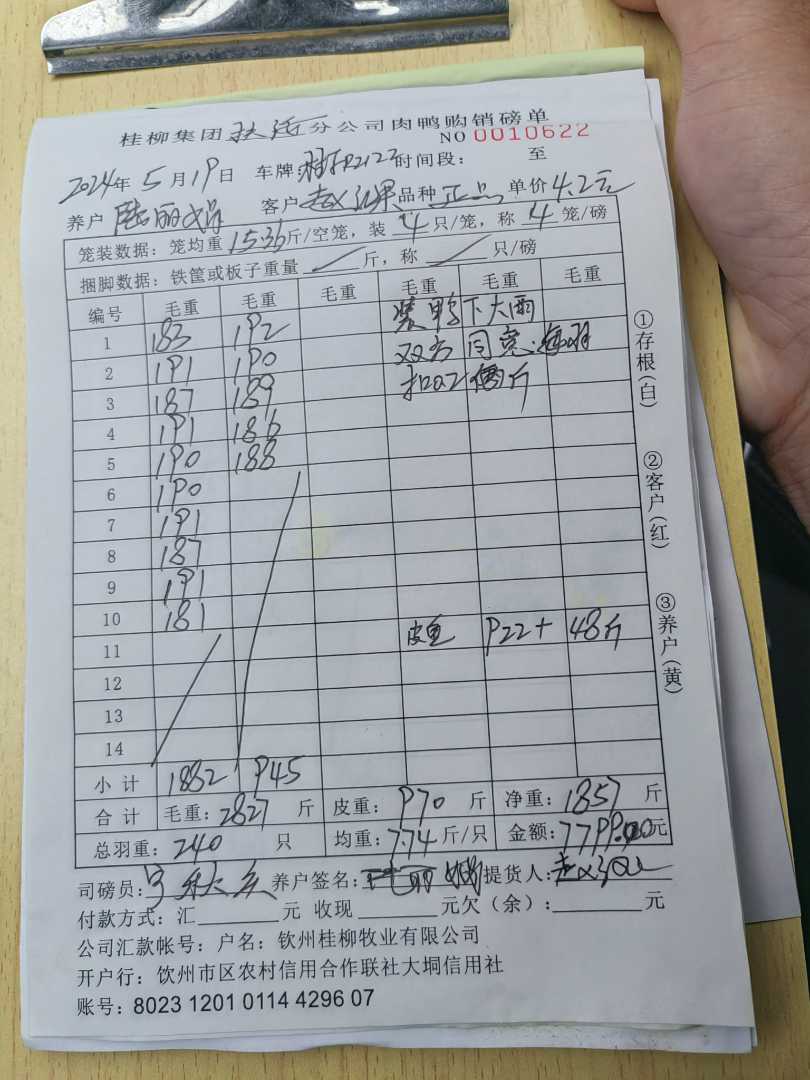 桂柳集团 分公司肉鸭购销磅单
NO 0010622
2024年 5月19日 车牌 时间段： 至
养户 陆丽娟 客户 品种 正品 单价 4.2元
笼装数据：笼均重 15.36斤/空笼，装 4 只/笼，称 4 笼/磅
捆脚数据：铁筐或板子重量 斤，称 只/磅
编号 毛重 毛重 毛重 毛重 毛重 毛重
1 183 192 装鸭下大雨
2 191 190 双方同意
3 187 189 扣 斤
4 191 186
5 190 188
6 190
7 191
8 187
9 191
10 181
11 皮重 922+ 48斤
12
13
14
小计 1882 945
合计 毛重：2827 斤 皮重：970 斤 净重：1857 斤
总羽重：240 只 均重：7.74 斤/只 金额：7799.00元
司磅员： 养户签名： 提货人：
付款方式：汇 元 收现 元欠（余）： 元
公司汇款帐号：户名：钦州桂柳牧业有限公司
开户行：钦州市区农村信用合作联社大垌信用社
账号：8023 1201 0114 4296 07
①存根（白）
②客户（红）
③养户（黄）